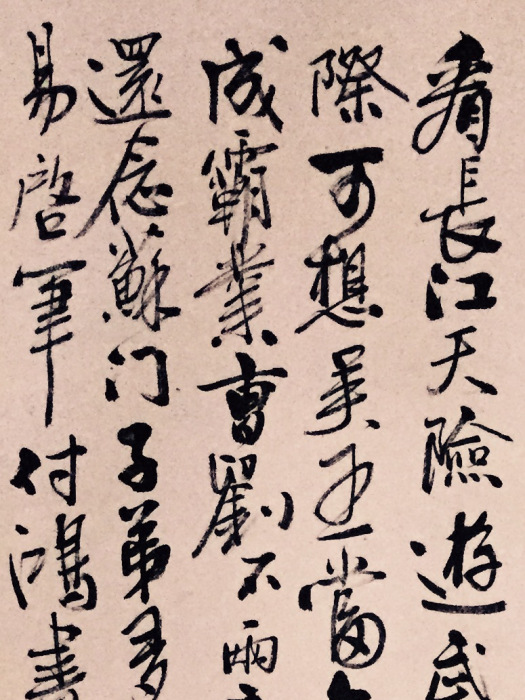 看長江天險遊武
際可想吴王當
成霸業曹劉不兩
還念蘇门子弟多
易啓軍付鴻書